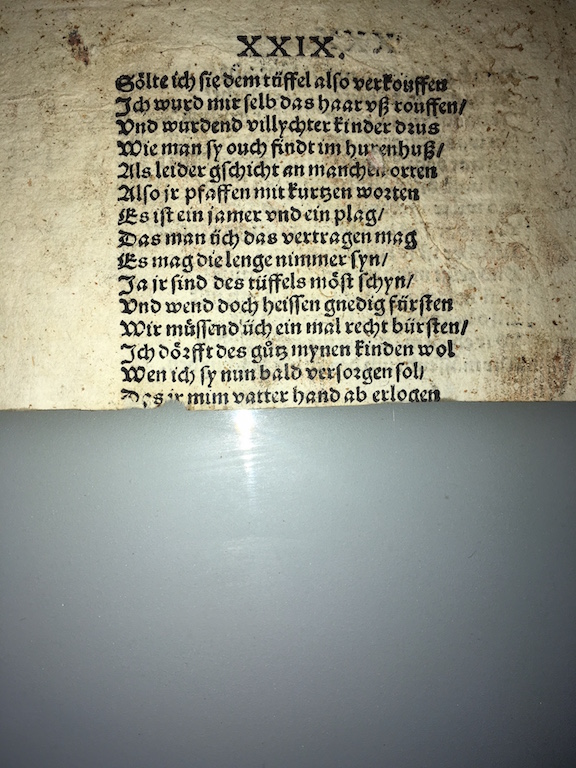 XXIX.
Sölte ich sie dem tüffel also verkouffen
Jch wurd mir selb das haar vß rouffen/
Vnd wurdend villychter kinder drus
Wie man sy ouch findt im hurenhuß/
Als leider gschicht an manchen orten
Also jr pfaffen mit kurtzen worten
Es ist ein jamer vnd ein plag/
Das man üch das vertragen mag
Es mag die lenge nimmer syn/
Ja jr sind des tüffels möst schyn/
Vnd wend doch heissen gnedig fürsten
Wir müssend üch ein mal recht bürsten/
Jch dörfft des gůtz mynen kinden wol
Wen ich sy nun bald versorgen sol/
Des jr mim vatter hand ab erlogen